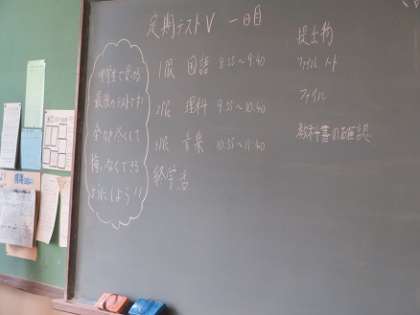 定期テストⅤ 一日目
中学生で受ける
最後のテストです!
全力を尽くして
悔いなくできる
ようにしよう!!
1限 国語 8:55~9:40
2限 理科 9:55~10:40
3限 音楽 10:55~11:40
終学活
提出物
ファイル ノート
ファイル
教科書の確認